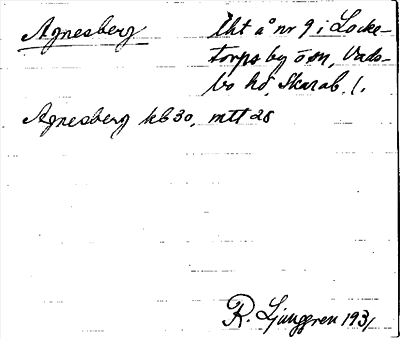 Agnesberg
Lht å nr 9 i Locke-
torps by ösn, Vads-
bo hd, Skarab. l.
Agnesberg hb 30, mtl 28
R. Ljunggren 1931